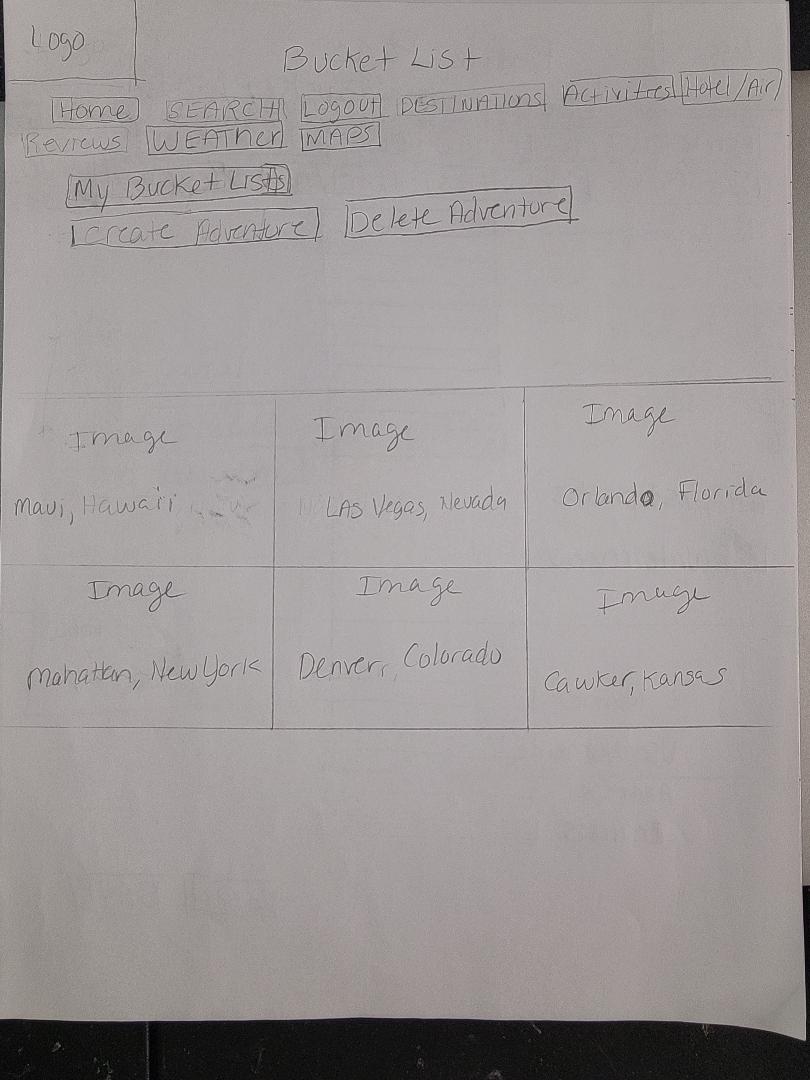 Logo
Bucket List
Home SEARCH Logout DESTINATIONS Activities Hotel/Air
Reviews WEATHER MAPS
My Bucket Lists
Create Adventure Delete Adventure
Image Image Image
Maui, Hawaii LAS Vegas, Nevada Orlando, Florida
Image Image Image
Mahattan, New York Denver, Colorado Cawker, Kansas